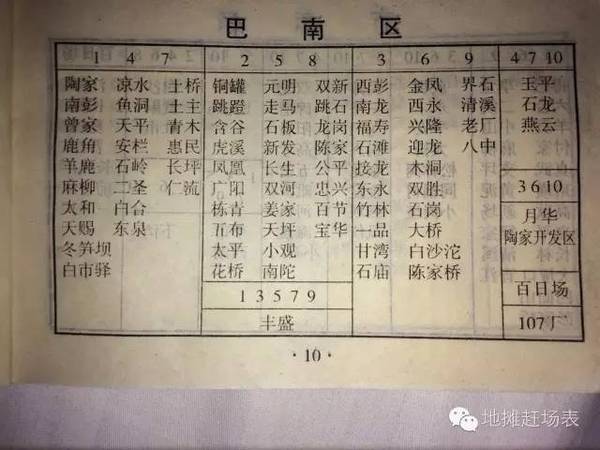 巴南区
1 4 7
陶家 凉水 土桥
南彭 鱼洞 土主
曾家 天平 青木
鹿角 安栏 惠民
羊鹿 石岭 长坪
麻柳 二圣 仁流
太和 白合
天赐 东泉
冬笋坝
白市驿
2 5 8
铜罐 元明 双新
跳蹬 走马 跳石
含谷 石板 龙岗
虎溪 新发 陈家
凤凰 长生 公平
广阳 双河 忠兴
栋青 姜家 百节
五布 天坪 宝华
太平 小观
花桥 南陀
1 3 5 7 9
丰盛
3 6 9
西彭 金凤 界石
南龙 西永 清溪
福寿 兴隆 老厂
石滩 迎龙 八中
接龙 木洞
东永 双胜
竹林 石岗
一品 大桥
甘湾 白沙沱
石庙 陈家桥
4 7 10
玉平
石龙
燕云
3 6 10
月华
陶家开发区
百日场
107厂
·10·
地摊赶场表